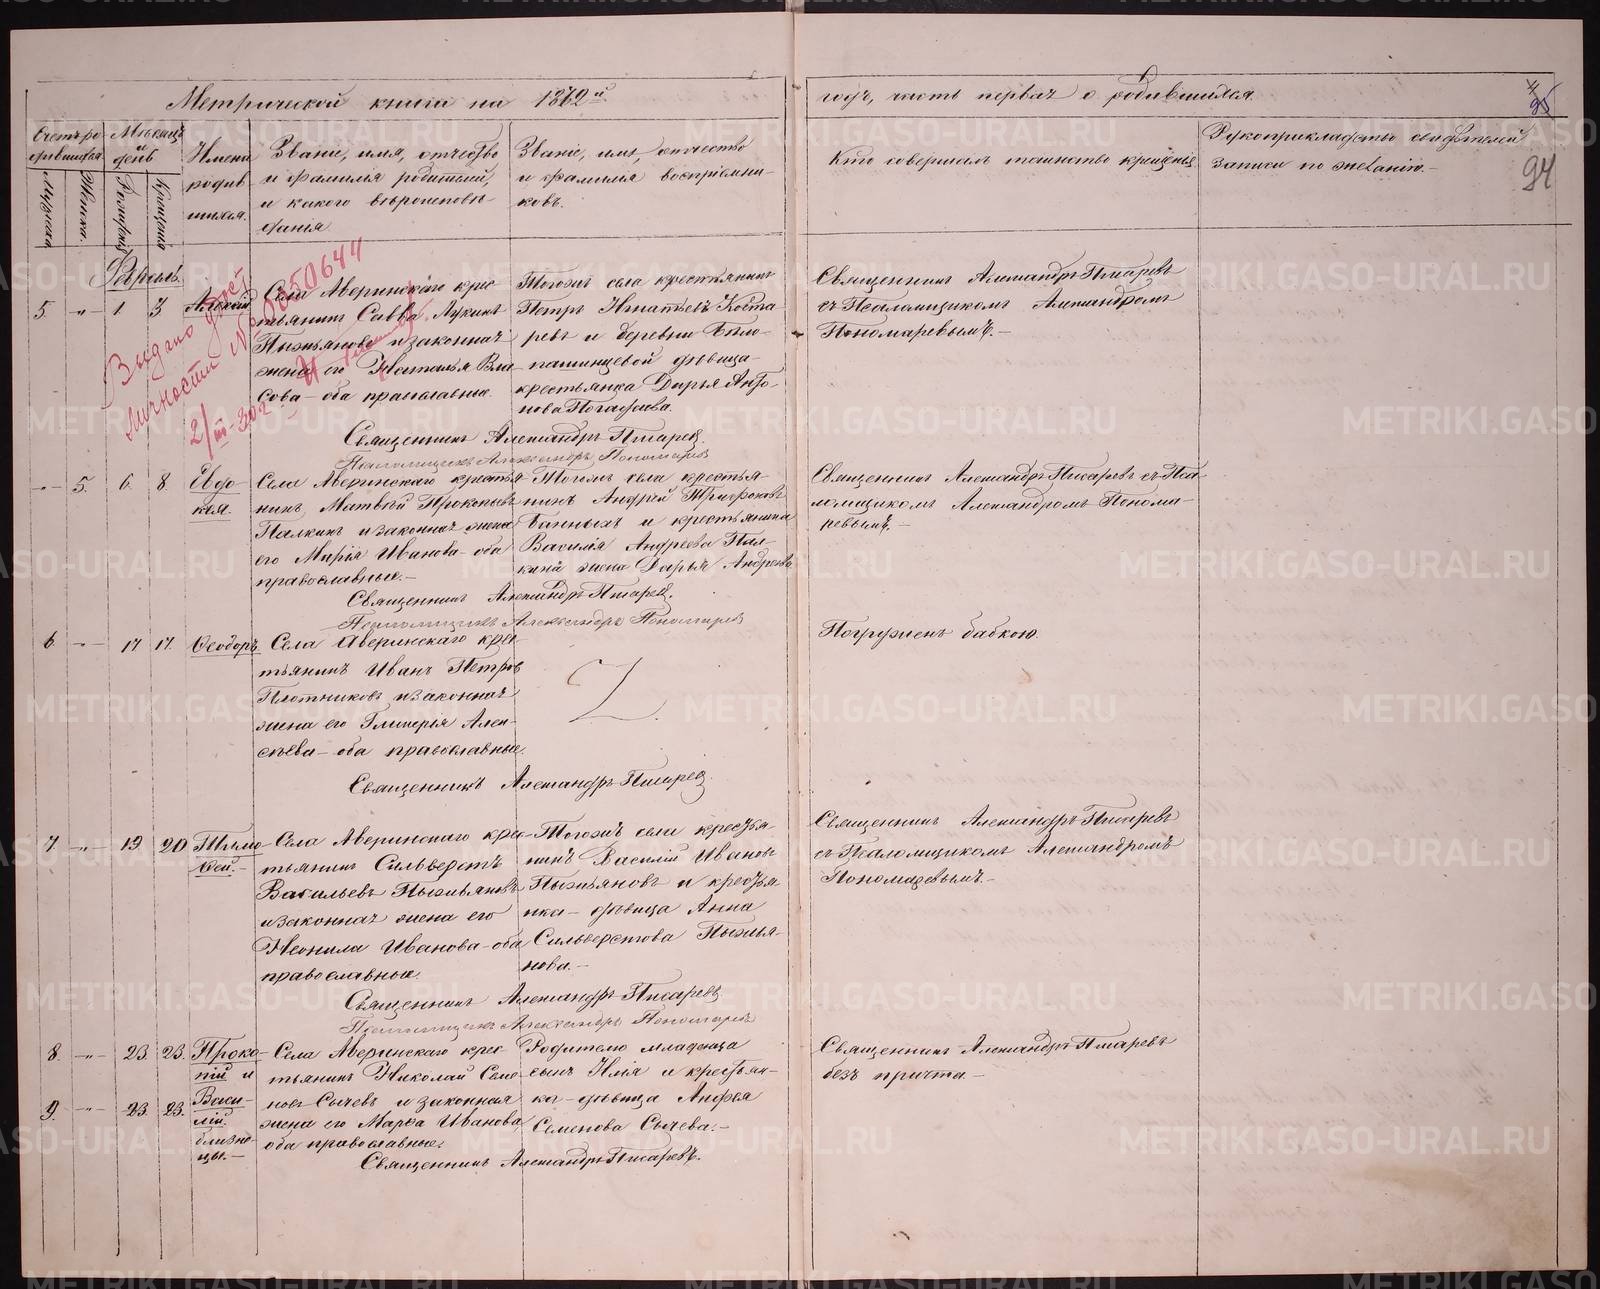 Метрической книги на 1872й годъ, часть первая о родившихся.
95
94
Счетъ родившихся
Мужеска
Женска.
Месяцъ и день
Рожденія
Крещенія
Имена
родив-
шихся.
Званіе, имя, отчество
и фамилія родителей,
и какого вероисповѣ-
данія
Званіе, имя, отчество
и фамилія воспріемни-
ковъ.
Кто совершалъ таинство крещенія
Рукоприкладство свидѣтелей
записи по желанію.-
Выдано
личности № 0050644
2/III-30г.
5. -"- 1 3
Села Аверинскаго крес-
тьянинъ Савва Лукинъ
Пыжьяновъ и законная
жена его Наталья Вла-
сова - оба православные.
Тогожъ села крестьянинъ
Петръ Игнатьевъ Коста-
ревъ и деревни Бѣло-
пашинцевой дѣвица
крестьянка Дарья Анфо-
Священникъ Александръ Писаревъ
съ Псаломщикомъ Александромъ
Пономаревымъ.-
Священникъ Александръ Писаревъ.
Псаломщикъ Александръ Пономаревъ
-"- 5. 6. 8. Евдо-
кія.
Села Аверинскаго крестья-
нинъ Матвѣй Прокопьевъ
Палкинъ и законная жена
его Марія Иванова - оба
православные.-
Тогожъ села крестья-
нинъ Андрей Трифоновъ
Банныхъ и крестьянина
Василія Андреева Пал-
кина жена Дарья Андреева
Священникъ Александръ Писаревъ съ Пса-
ломщикомъ Александромъ Понома-
ревымъ.-
Священникъ Александръ Писаревъ.
Псаломщикъ Александръ Пономаревъ
6. -"- 17 17. Ѳеодоръ
Села Аверинскаго крес-
тьянинъ Иванъ Петровъ
Плотниковъ и законная
жена его Гликерія Алек-
сѣева - оба православные.
Погруженъ бабкою.
Священникъ Александръ Писаревъ.
7. -"- 19 20 Тимо-
ѳей.-
Села Аверинскаго крес-
тьянинъ Сильверстъ
Васильевъ Пыжьяновъ
и законная жена его
Неонила Иванова - оба
православные.
Тогожъ села крестья-
нинъ Василій Ивановъ
Пыжьяновъ и крестья-
нка - дѣвица Анна
Сильверстова Пыжья-
нова.-
Священникъ Александръ Писаревъ
съ Псаломщикомъ Александромъ
Пономаревымъ.-
Священникъ Александръ Писаревъ
Псаломщикъ Александръ Пономаревъ
8. -"- 23. 23. Проко-
пій и
9. -"- 23. 23. Васи-
лій.
близне-
цы.-
Села Аверинскаго крес-
тьянинъ Николай Семе-
новъ Сычевъ и законная
жена его Марѳа Иванова,
оба православные.
Родителю младенца
сынъ Илія и крестьян-
ка - дѣвица
Семенова Сычева.-
Священникъ Александръ Писаревъ
безъ причта.-
Священникъ Александръ Писаревъ.
METRIKI.GASO-URAL.RU